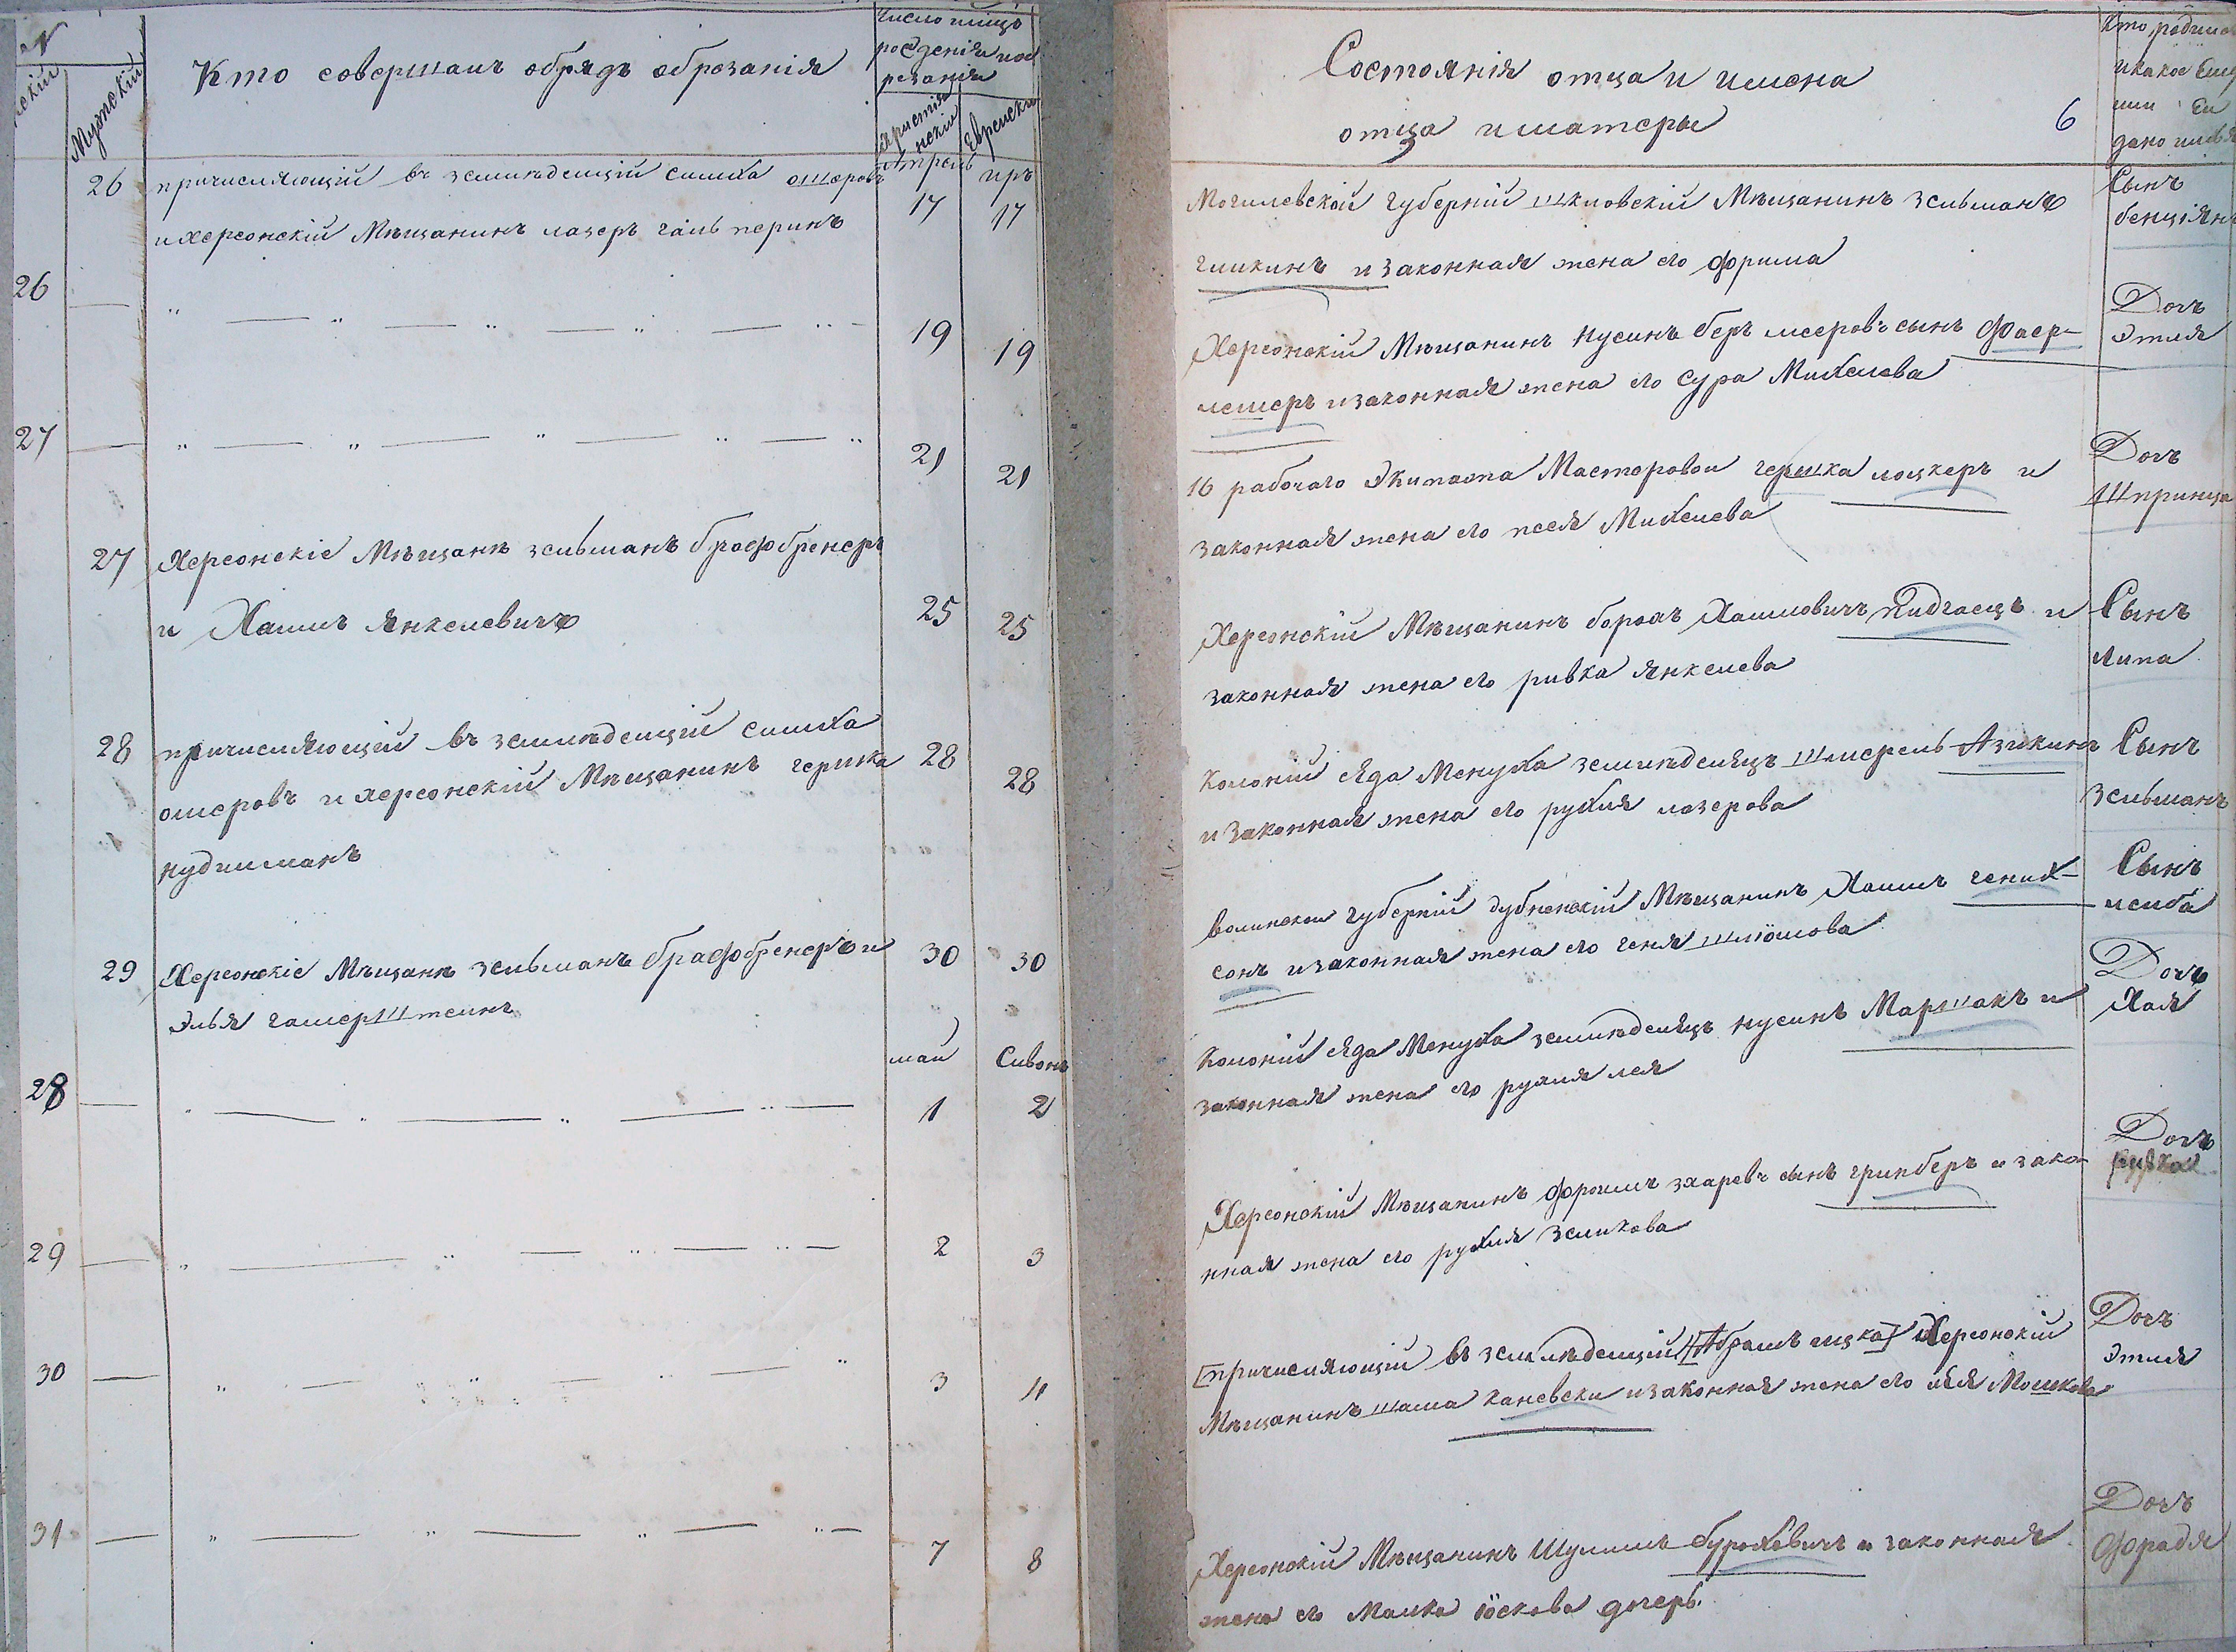 Мужский
Кто совершал обрядъ обрезанія
Число и мицъ
рожденія и об
резанія
Христіа
нскій
Еврейски
26 причисляющій въ земледелцій симха ошеровъ
Апрель
иръ
и херсонскій Мѣщанинъ лазеръ галь перинъ
17
17
26 — " — " — " — " — " —
19
19
27 — " — " — " — " — "
21
21
27 Херсонскіе Мѣщане зельманъ брафбренеръ
и Хаимъ Янкелевичъ
25
25
28 причисляющій въ земледелцій симха
ошеровъ и херсонскій Мѣщанинъ гершка
28
28
нудилманъ
29 Херсонскіе Мѣщане зельманъ брафбренеръ и
30
30
Элья гамерштеинъ
май
Сивонъ
28 — " — " — " — " —
1
2
29 — " — " — " — " —
2
3
30 — " — " — " — "
3
4
31 — " — " — " — " —
7
8
Состоянія отца и имена
отца и матеры
6
Кто родился
и какое Ему
или Ей
дано имья
Могилевской губерніи шкловскій Мѣщанинъ зельманъ
гликинъ и законная жена его фрима
Сынъ
бенціянъ
Херсонскій Мѣщанинъ Нусинъ беръ мееровъ сынъ фаер-
лешеръ и законная жена его сура Михелева
Дочъ
Этля
16 рабочаго Экипажа Мастеровои гершка лоцкеръ и
законная жена его песя Михелева
Дочъ
Шпринца
Херсонскій Мѣщанинъ борохъ Хаимовичъ Пидгаецъ и
законная жена его ривка Янкелева
Сынъ
липа
Колоніи Яда Менуха земледелецъ шмерель Азикинъ
и законная жена его рухля лазерова
Сынъ
Зельманъ
волинскои губерніи дубненскій Мѣщанинъ Хаимъ гених-
сонъ и законная жена его геня шліомова
Сынъ
лейба
Колоніи Яда Менуха земледелецъ нусинъ Маршакъ и
законная жена его рухля лея
Дочъ
Хая
Херсонскій Мѣщанинъ фроимъ захаревъ сынъ гринберъ и зако-
нная жена его рухля Зеликова
Дочъ
ривка
[причисляющій въ земледелцій [Абрамъ ицка] Херсонскій
Мѣщанинъ шама каневски и законная жена его хая Мошкова
Дочъ
Этля
Херсонскій Мѣщанинъ Шулимъ бурохевичъ и законная
жена его Малка Іоскова дочерь.
Дочъ
фрадя